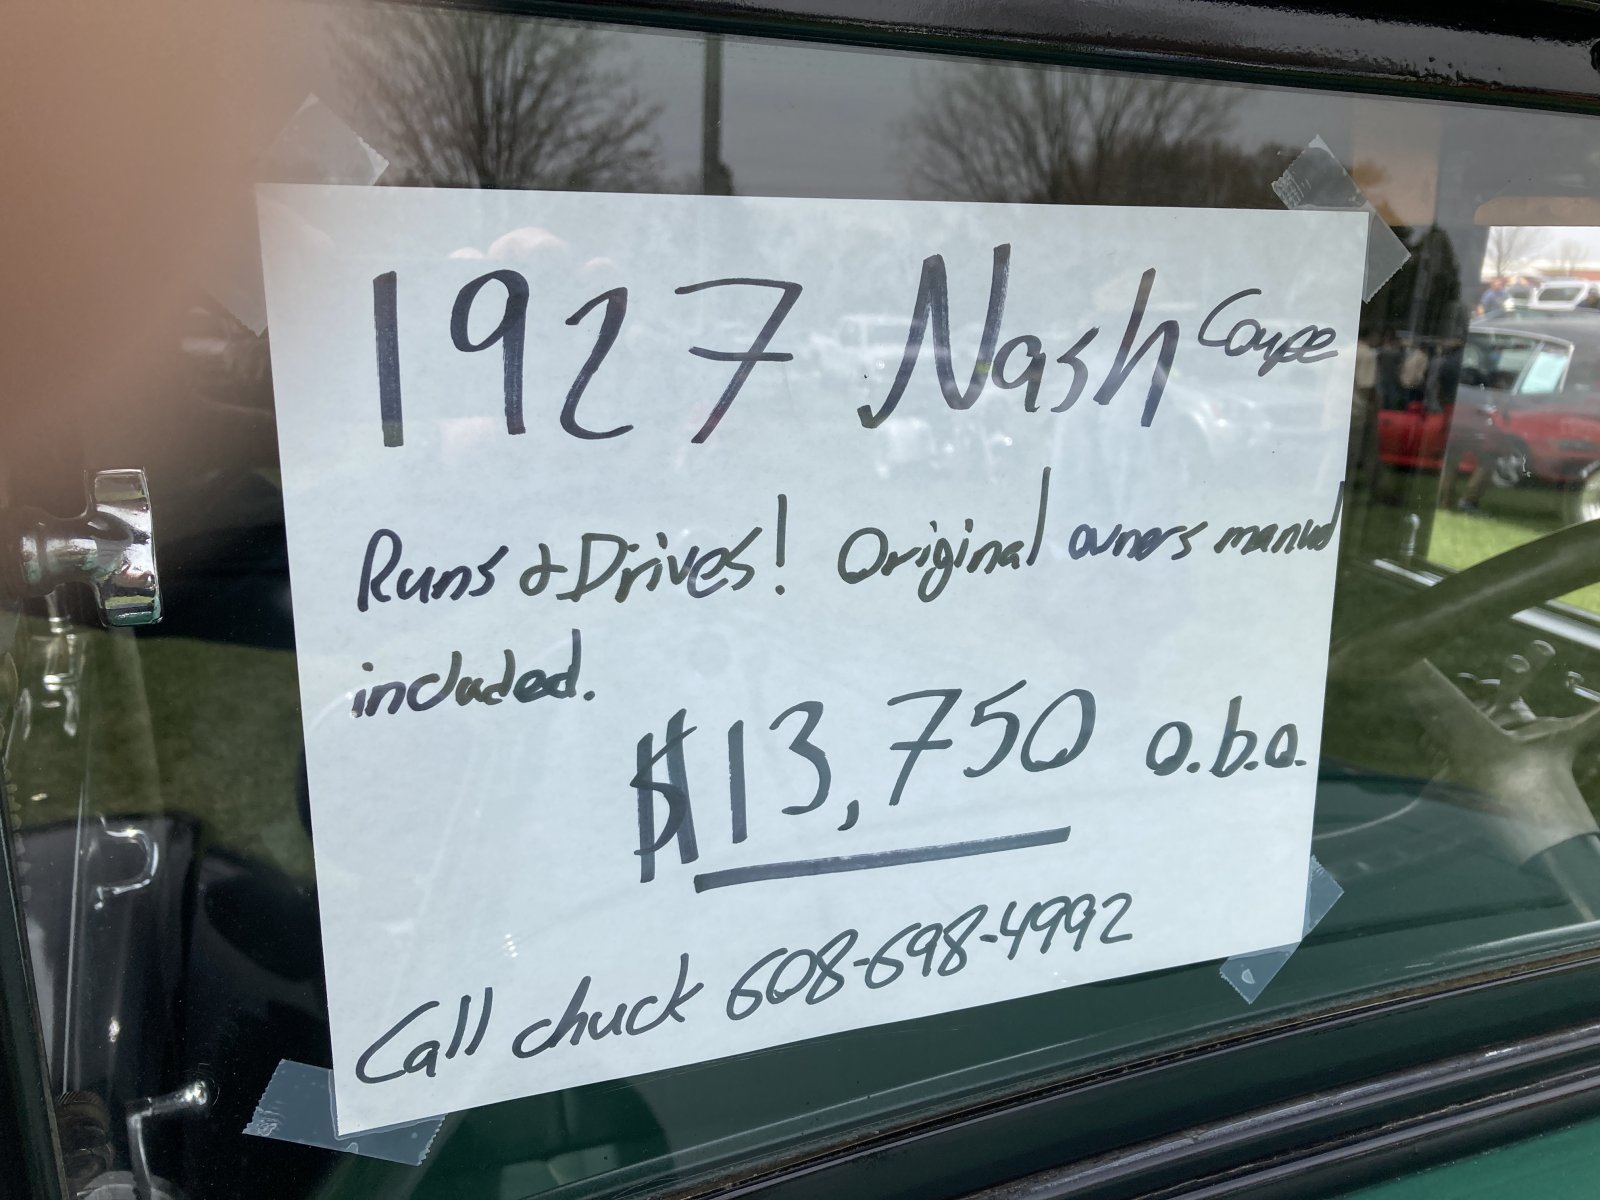 1927 Nash Coupe
Runs & Drives! Original owners manual
included.
$13,750 o.b.o.
Call chuck 608-698-4992